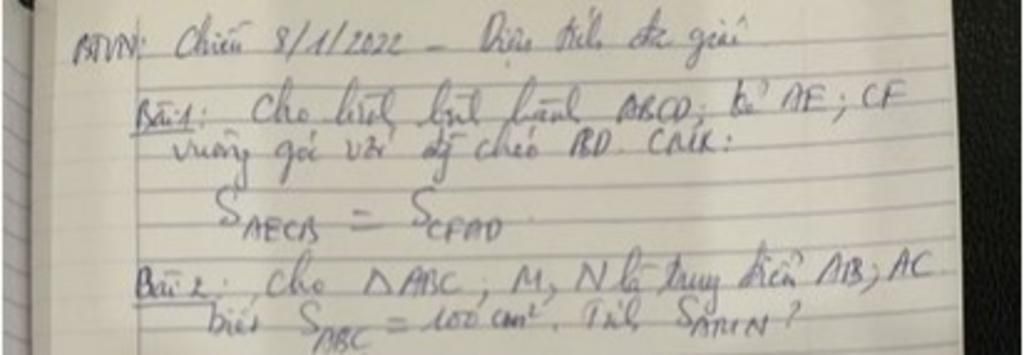 BTVN: Chiều 8/1/2022 - Diện tích đa giác
Bài 1: Cho hình bình hành ABCD; kẻ AE; CF
vuông góc với đg chéo BD. CMR:
S AECB = S CFAD
Bài 2: Cho ΔABC; M, N là trung điểm AB; AC
biết S ABC = 100 cm². Tính S AMN?